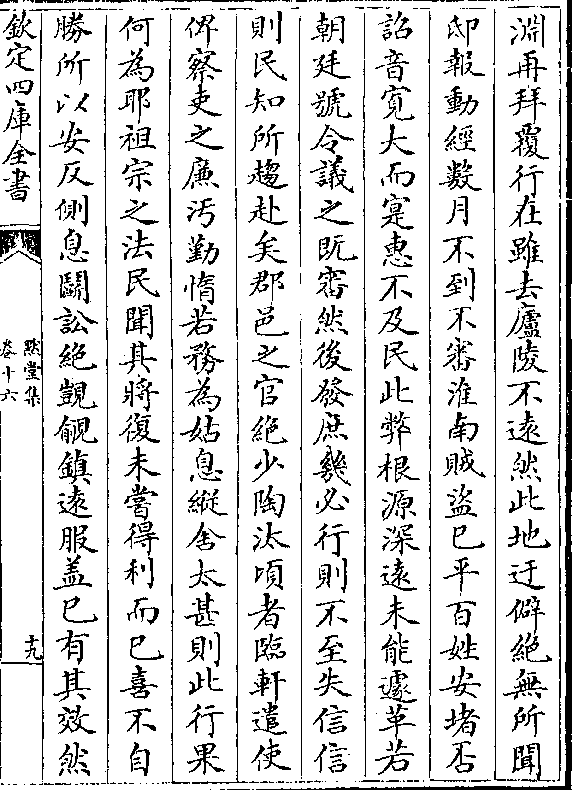 淵再拜覆行在雖去廬陵不遠然此地迂僻絶無所聞
邸報動經數月不到不審淮南賊盜已平百姓安堵否
詔音寛大而寔惠不及民此弊根源深遠未能遽革若
朝廷號令議之既審然後發庶幾必行則不至失信信
則民知所趨赴矣郡邑之官絶少陶汰頃者臨軒遣使
俾察吏之亷汚勤惰若務為姑息縱舍太甚則此行果
何為耶祖宗之法民聞其將復未嘗得利而已喜不自
勝所以安反側息鬭訟絶覬覦鎮遠服盖已有其效然
欽定四庫全書
默堂集
卷十六
十九